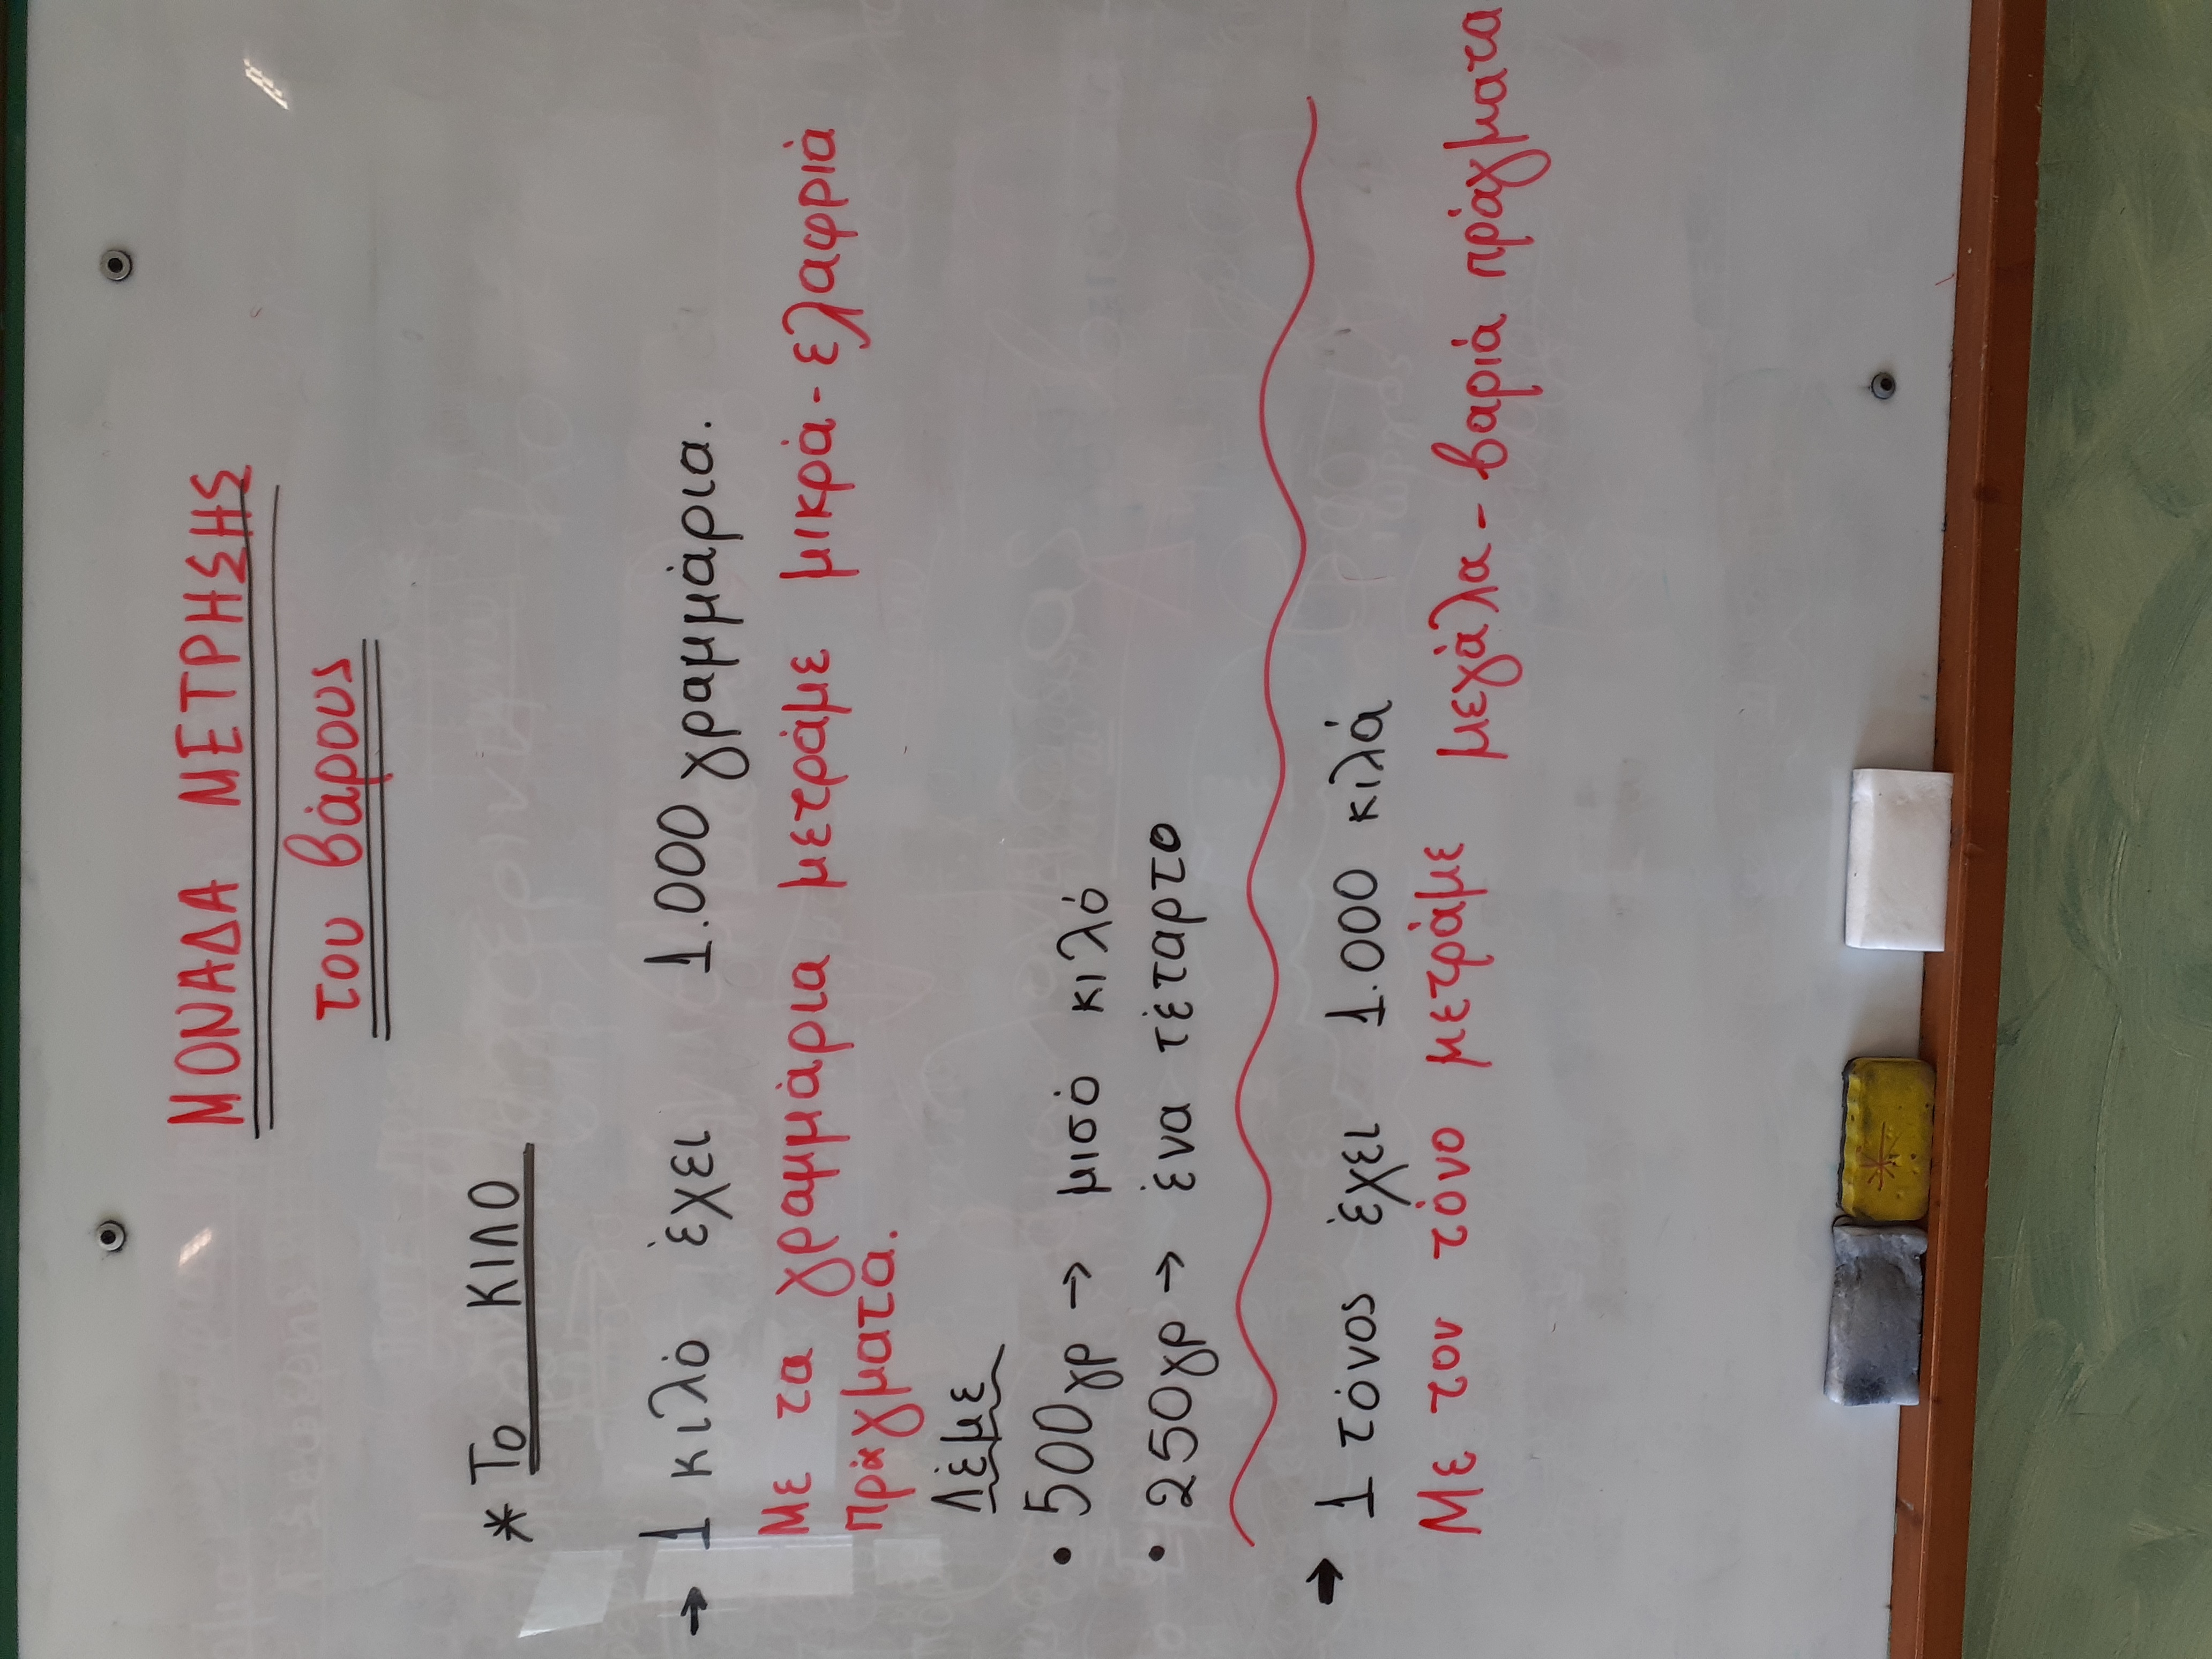 ΜΟΝΑΔΑ ΜΕΤΡΗΣΗΣ
του βάρους
* Το ΚΙΛΟ
→ 1 κιλό έχει 1.000 γραμμάρια.
Με τα γραμμάρια μετράμε μικρά - ελαφριά
πράγματα.
Λέμε
• 500γρ → μισό κιλό
• 250γρ → ένα τέταρτο
→ 1 τόνος έχει 1.000 κιλά
Με τον τόνο μετράμε μεγάλα - βαριά πράγματα